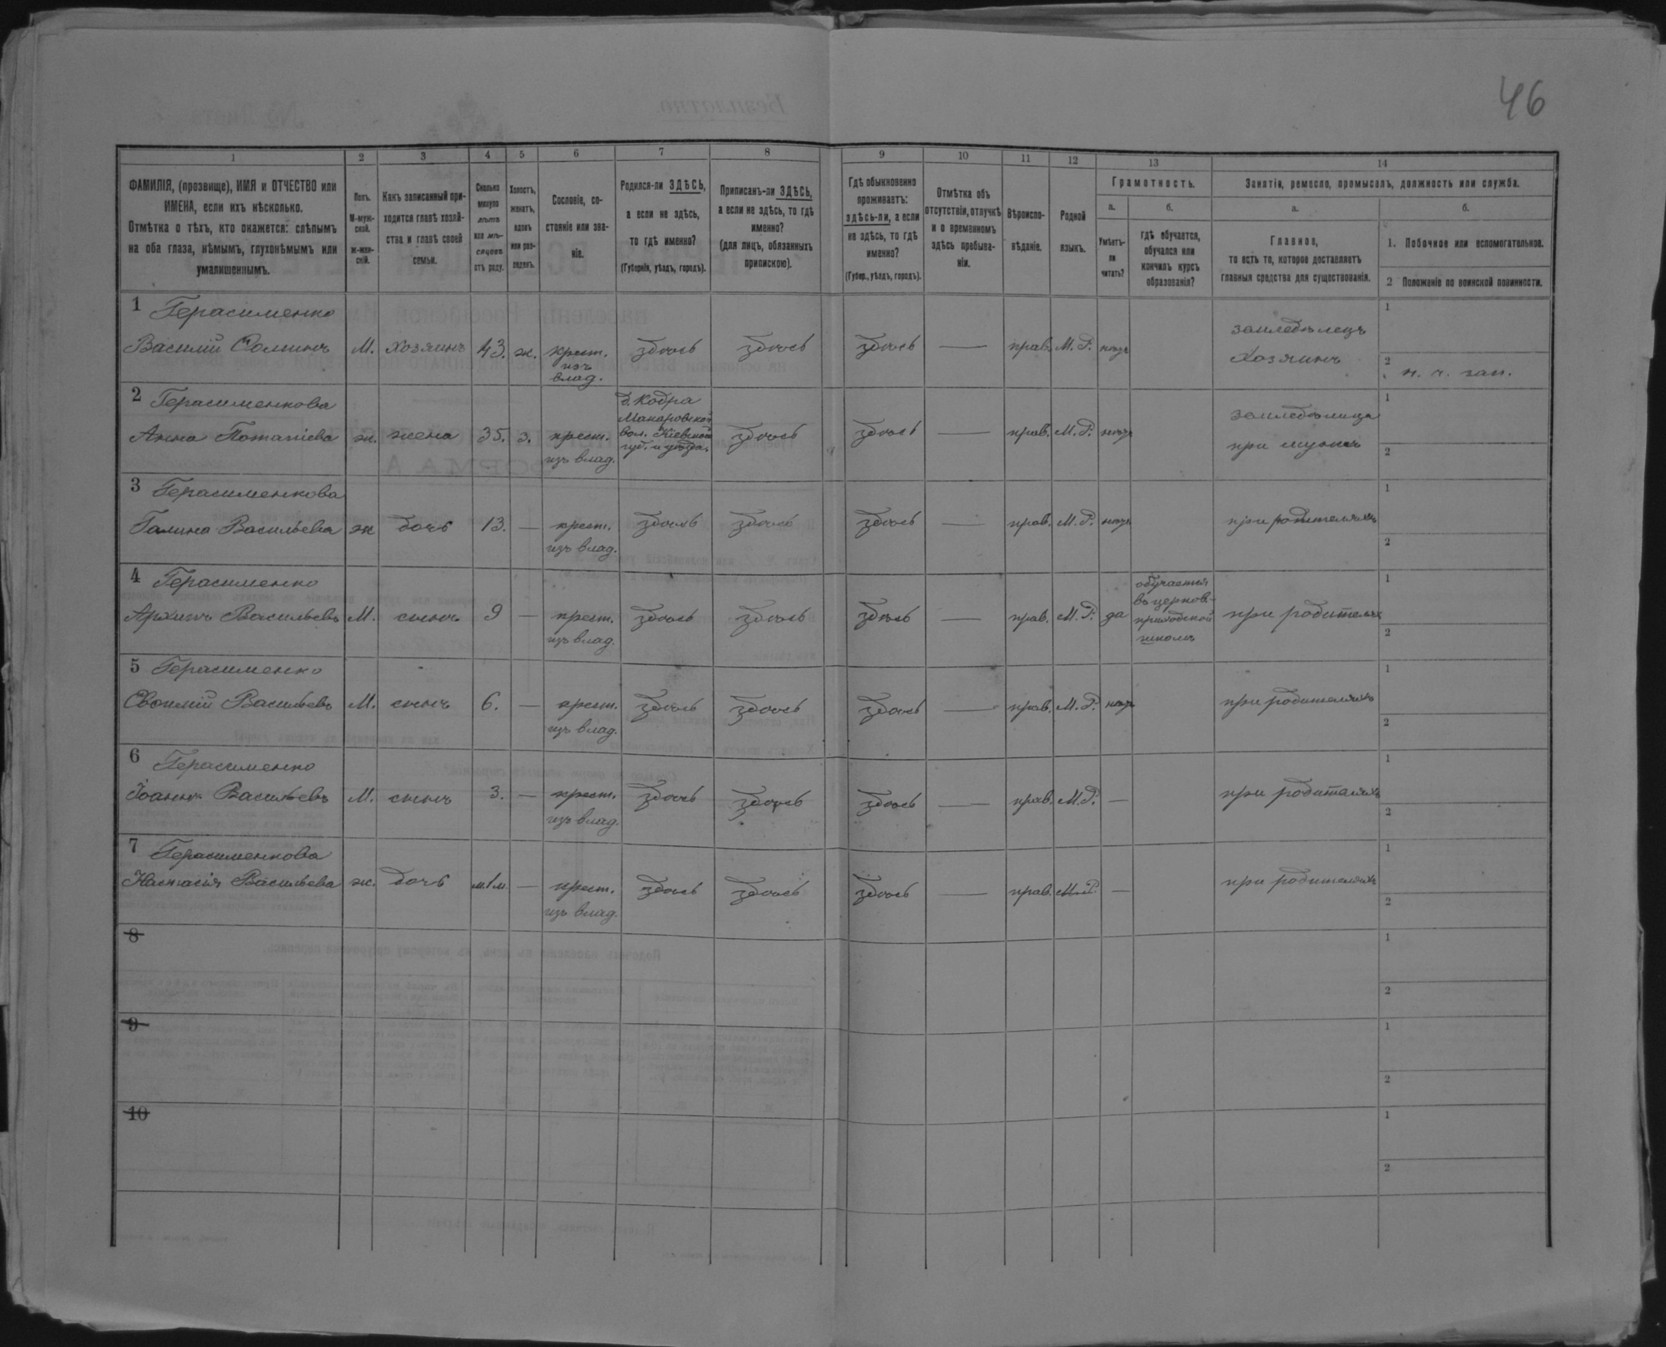 46
1 2 3 4 5 6 7 8 9 10 11 12 13 14
ФАМИЛІЯ, (прозвище), ИМЯ и ОТЧЕСТВО или
ИМЕНА, если ихъ нѣсколько.
Отмѣтка о тѣхъ, кто окажется: слѣпымъ
на оба глаза, нѣмымъ, глухонѣмымъ или
умалишеннымъ.
Полъ.
М-муж-
ской.
ж-жен-
скій.
Какъ записанный при-
ходится главѣ хозяй-
ства и главѣ своей
семьи.
Сколько
минуло
лѣтъ
или мѣ-
сяцевъ
отъ роду.
Холостъ,
женатъ,
вдовъ
или раз-
веденъ.
Сословіе, со-
стояніе или зва-
ніе.
Родился-ли ЗДѢСЬ,
а если не здѣсь,
то гдѣ именно?
(Губернія, уѣздъ, городъ).
Приписанъ-ли ЗДѢСЬ,
а если не здѣсь, то гдѣ
именно?
(для лицъ, обязанныхъ
припискою).
Гдѣ обыкновенно
проживаетъ:
здѣсь-ли, а если
не здѣсь, то гдѣ
именно?
(Губер., уѣздъ, городъ).
Отмѣтка объ
отсутствіи, отлучкѣ
и о временномъ
здѣсь пребыва-
ніи.
Вѣроиспо-
вѣданіе.
Родной
языкъ.
Грамотность.
а.
Умѣетъ-
ли
читать?
б.
гдѣ обучается,
обучался или
кончилъ курсъ
образованія?
Занятіе, ремесло, промыселъ, должность или служба.
а.
Главное,
то есть то, которое доставляетъ
главныя средства для существованія.
б.
1. Побочное или вспомогательное.
2 Положеніе по воинской повинности.
1 Герасименко
Василій Ѳоминъ М. хозяинъ 43. ж. крест. изъ влад. здѣсь здѣсь здѣсь — прав. М. Р. нѣтъ земледѣлецъ хозяинъ 1
2 н. ч. зап.
2 Герасименкова
Анна Потапіева ж. жена 35. з. крест. изъ влад. д. Кодра Макаровской вол. Кіевской губ. и уѣзда. здѣсь здѣсь — прав. М. Р. нѣтъ земледѣлица при мужѣ 1
2
3 Герасименкова
Галина Васильева ж дочь 13. — крест. изъ влад. здѣсь здѣсь здѣсь — прав. М. Р. нѣтъ при родителяхъ 1
2
4 Герасименко
Архипъ Васильевъ М. сынъ 9 — крест. изъ влад. здѣсь здѣсь здѣсь — прав. М. Р. да обучается въ церков- приходской школѣ при родителяхъ 1
2
5 Герасименко
Васильевъ М. сынъ 6. — крест. изъ влад. здѣсь здѣсь здѣсь — прав. М. Р. нѣтъ при родителяхъ 1
2
6 Герасименко
Іоаннъ Васильевъ М. сынъ 3. — крест. изъ влад. здѣсь здѣсь здѣсь — прав. М. Р. — при родителяхъ 1
2
7 Герасименкова
Настасія Васильева ж. дочь — крест. изъ влад. здѣсь здѣсь здѣсь — прав. М. Р. — при родителяхъ 1
2
8 1
2
9 1
2
10 1
2